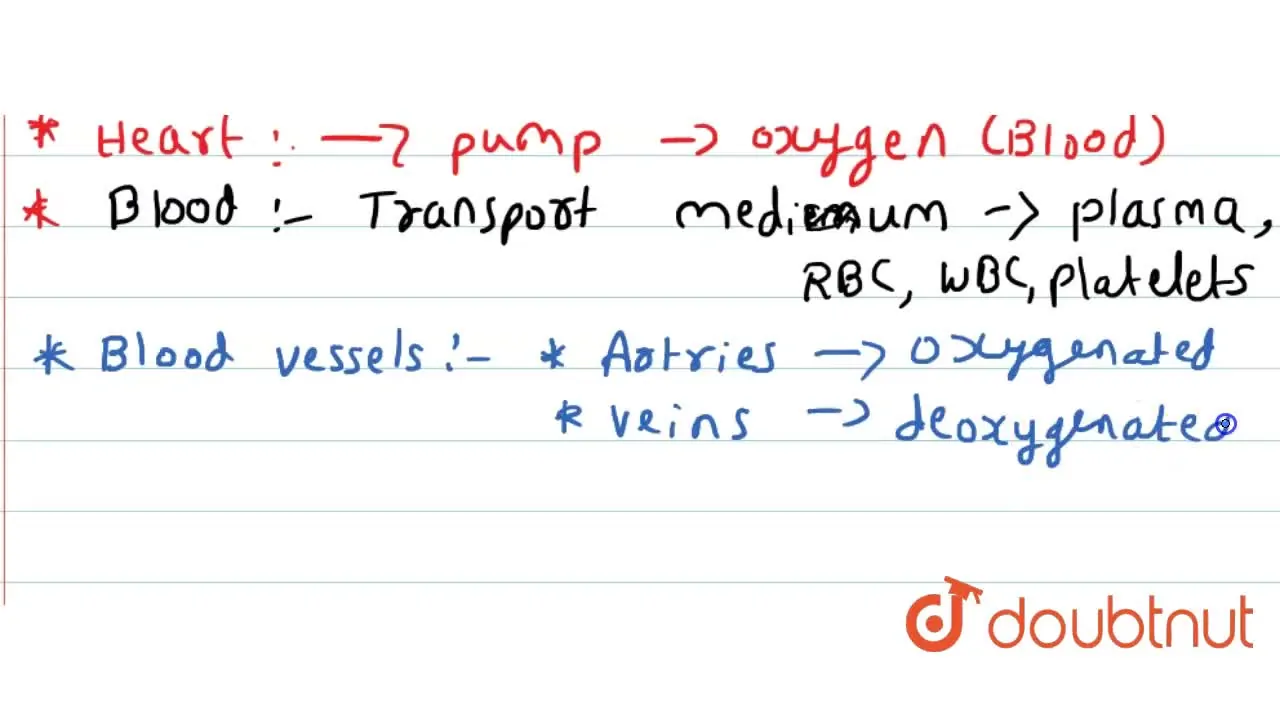 * Heart :- → pump → oxygen (Blood)
* Blood :- Transport medium → plasma,
RBC, WBC, platelets
* Blood vessels :- * Aotries → oxygenated
* veins → deoxygenated
doubtnut